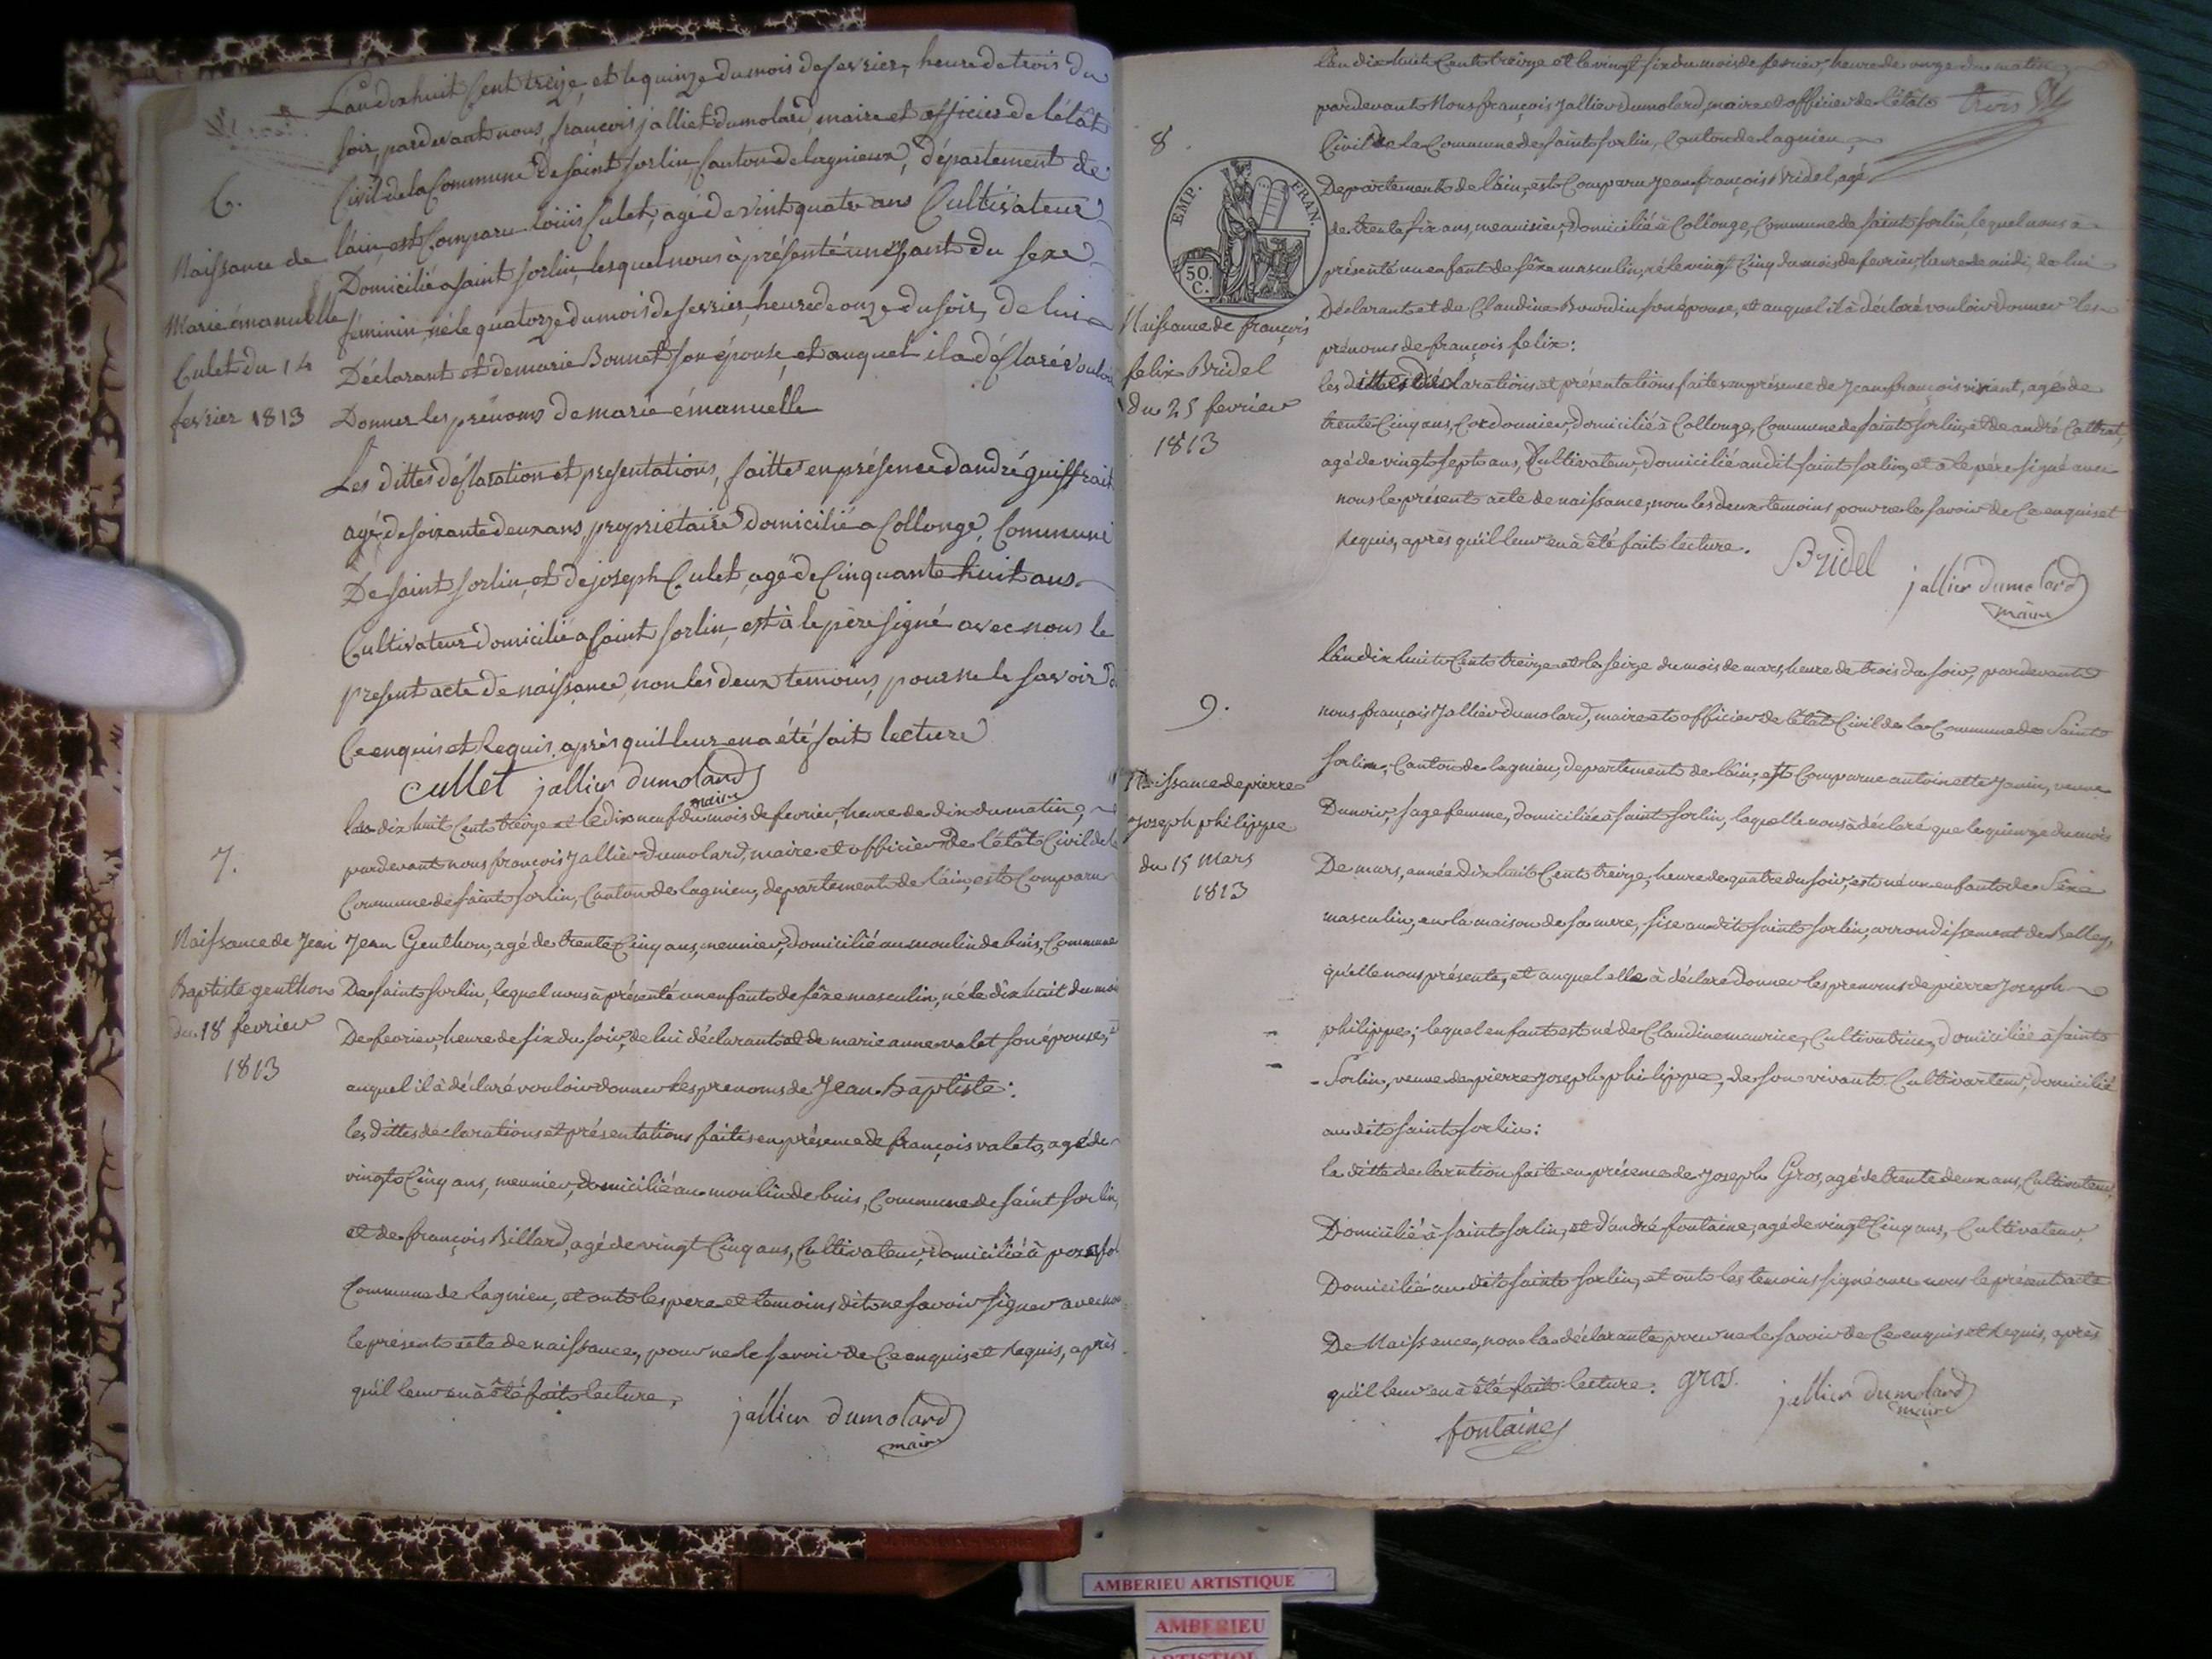 Lan dix huit Cent treize, et le quinze du mois de fevrier, heure de trois du
soir, pardevant nous, françois jalliet dumolard, maire et officier de l'état
Civil de la Commune De saint sorlin, Canton de lagnieux, département de
6.
l'ain, est Comparu louis Culet, agé de vint quatre ans Cultivateur
Domicilié a saint sorlin, lesquel nous à présenté un efant du sexe
féminin, né le quatorze du mois de fevrier, heure de onze du soir, de lui
Déclarant et de marie Bonnet son épouse, et auquel il a déclaré voulou
Donner les prénoms de marie émanuélle
Naissance de
Marie émanuelle
Culet du 14
fevrier 1813
Les dittes déclaration et presentations, faitte en présence d'andré guiffrait
agé de soixante deux ans, propriétaire domicilié a Collonge, Commune
De saint sorlin, et de joseph Culet, agé de Cinquante huit ans
Cultivateur domicilié a saint sorlin, est à le père signé avec nous le
present acte de naissance, non les deux temoins, pour ne le savoir d
Ce enquis et Requis, après quil leur en a été fait lecture
Cullet jallier dumolard
maire
lan dix huit Cent treize et le dix neuf du mois de fevrier, heure de dix du matin,
pardevant nous françois Jallier Dumolard, maire et officier De l'état Civil de l
Commune de saint sorlin, Canton de lagnieu, departement de l'ain, est Comparu
7.
Jean Genthon, agé de trente Cinq ans, meunier, domicilié au moulin de buis, Commune
De saint sorlin, lequel nous à présenté un enfant de sêxe masculin, né le dix huit du moi
De fevrier, heure de six du soir, de lui déclarant et de marie anne valet son épouse, et
auquel il à déclaré vouloir donner les prenoms de Jean Baptiste :
Naissance de Jean
Baptiste genthon
du 18 fevrier
1813
les dittes declarations et présentations faites en présence de françois valet, agé de
vingt Cinq ans, meunier, domicilié au moulin de buis, Commune de saint sorlin,
et de françois Billard, agé de vingt Cinq ans, Cultivateur, domicilié à
Commune de lagnieu, et ont les pere et temoins dit ne savoir signer avec nou
le présent acte de naissance, pour ne le savoir de Ce enquis et Requis, après
qu'il leur en à été fait lecture.
jallier dumolard
maire
lân dix huit Cent treize et le vingt six du mois de fevrier, heure de onze du matin
pardevant Nous françois Jallier dumolard, maire et officier de l'état trois
Civil de la Commune de saint sorlin, Canton de lagnieu,
8.
Departement de l'ain, est Comparu Jean françois Bridel, agé
de trente six ans, menuisier, domicilié à Collonge, Commune de saint sorlin, lequel nous à
présenté un enfant de sêxe masculin, né le vingt Cinq du mois de fevrier, heure de midi, de lui
Déclarant et de Claudine Bourdin son épouse, et auquel il à déclaré vouloir donner les
prénoms de françois felix :
EMP. FRAN.
50.
C.
Naissance de françois
felix Bridel
du 25 fevrier
1813
les dittes déclarations et présentations faites en présence de Jean françois vivant, agé de
trente Cinq ans, Cordonnier, domicilié à Collonge, Commune de saint sorlin, et de andré Cattrat,
agé de vingt sept ans, Cultivateur, domicilié audit saint sorlin, et a le pére signé avec
nous le présent acte de naissance, non les deux temoins pour ne le savoir de Ce enquis et
Requis, après qu'il leur en à été fait lecture.
Bridel
jallier dumolard
maire
lân dix huit Cent treize et le seize du mois de mars, heure de trois du soir, pardevant
nous françois Jallier dumolard, maire et officier de l'état Civil de la Commune de Saint
9.
Sorlin, Canton de lagnieu, departement de l'ain, est Comparue antoinette Janin, veuve
Dunoir, sage femme, domiciliée à saint sorlin, laquelle nous à déclaré que le quinze du mois
De mars, année dix huit Cent treize, heure de quatre du soir, est né un enfant de sêxe
masculin, en la maison de sa mere, sise audit saint sorlin, arrondissement de Belley,
qu'elle nous présente, et auquel elle à déclaré donner les prenoms de pierre Joseph
philippe ; lequel enfant est né de Claudine maurice, Cultivatrice, domiciliée à saint
Sorlin, veuve de pierre Joseph philippe, de son vivant Cultivateur, domicilié
audit saint sorlin :
Naissance de pierre
Joseph philippe
du 15 Mars
1813
la ditte declaration faite en présence de Joseph Gros, agé de trente deux ans, Cultivateur,
Domicilié à saint sorlin, et d'andré fontaine, agé de vingt Cinq ans, Cultivateur,
Domicilié audit saint sorlin, et ont les temoins signé avec nous le présent acte
De Naissance, non la déclarante pour ne le savoir de Ce enquis et Requis, après
qu'il leur en à été fait lecture. gros. jallier dumolard
maire
fontaine
AMBERIEU ARTISTIQUE
AMBERIEU
ARTISTIQUE